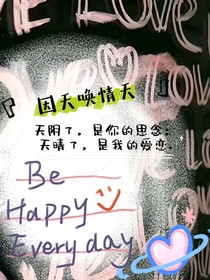 LOVE
『因天唤情天』
天阴了，是你的思念；
天晴了，是我的爱恋．
Be
Happy
Every day